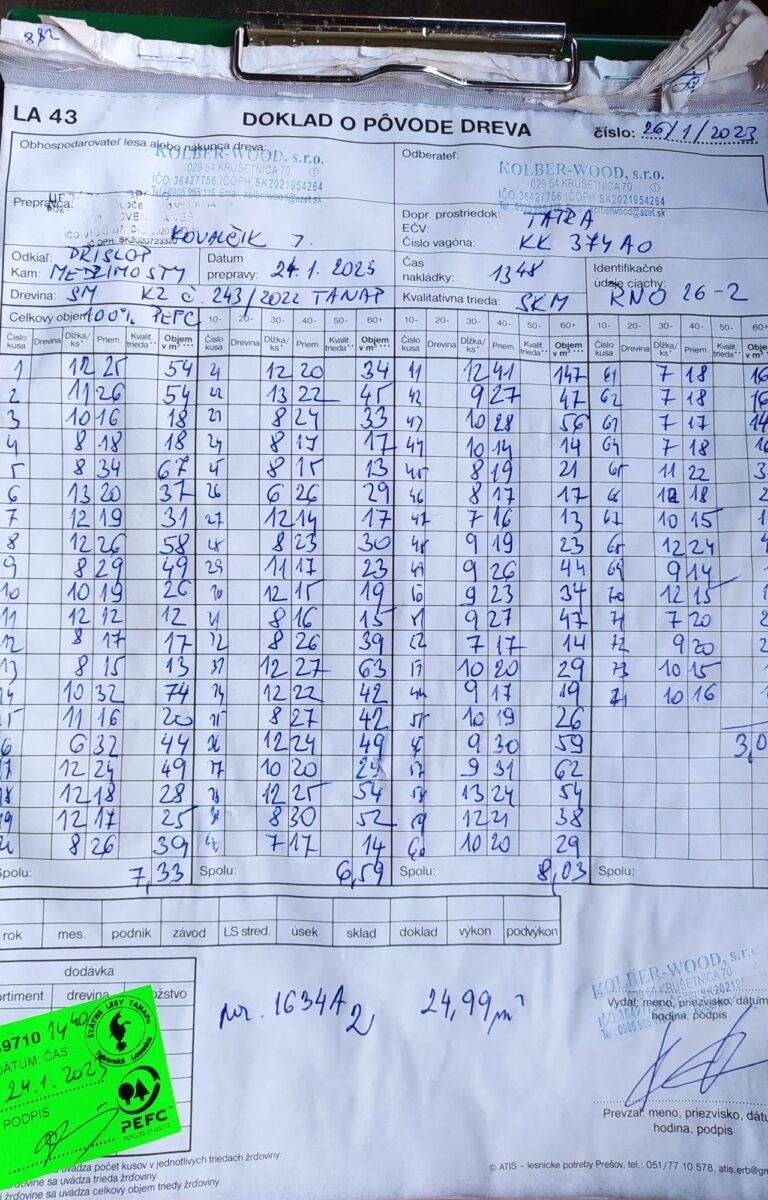 882
LA 43 DOKLAD O PÔVODE DREVA číslo: 26/1/2023
Obhospodarovateľ lesa alebo nákupca dreva:
KOLBER-WOOD, s.r.o.
029 54 KRUŠETNICA 70 ①
IČO: 36427756 IČDPH SK2021954264
Odberateľ:
KOLBER-WOOD, s.r.o.
029 54 KRUŠETNICA 70 ①
IČO: 36427756 IČDPH SK2021954264
Prepravca:
KOVALČIK J.
Dopr. prostriedok: TATRA
EČV:
Číslo vagóna: KK 374AO
Odkiaľ: PRISLOP
Kam: MEDZIMOSTY
Dátum prepravy: 24.1.2023
Čas nakládky: 13 48
Identifikačné údaje ciachy: RNO 26-2
Drevina: SM KZ č. 243/2022 TANAP
Kvalitatívna trieda: SKM
Celkový objem 100% PEFC 10- 20- 30- 40- 50- 60+ 10- 20- 30- 40- 50- 60+ 10- 20- 30- 40- 50- 60+
Číslo kusa Drevina Dĺžka/ks* Priem. Kvalit. trieda** Objem v m³ *** Číslo kusa Drevina Dĺžka/ks* Priem. Kvalit. trieda** Objem v m³ *** Číslo kusa Drevina Dĺžka/ks* Priem. Kvalit. trieda** Objem v m³ *** Číslo kusa Drevina Dĺžka/ks* Priem. Kvalit. trieda** Objem v m³
1 12 25 54 21 12 20 34 41 12 41 147 61 7 18 16
2 11 26 54 22 13 22 45 42 9 27 47 62 7 18 16
3 10 16 18 23 8 24 33 43 10 28 56 63 7 17 14
4 8 18 18 24 8 17 17 44 10 14 14 64 7 18
5 8 34 67 25 8 15 13 45 8 19 21 65 11 22
6 13 20 37 26 6 26 29 46 8 17 17 66 18
7 12 19 31 27 12 14 17 47 7 16 13 67 10 15
8 12 26 58 28 8 23 30 48 9 19 23 68 12 24
9 8 29 49 29 11 17 23 49 9 26 44 69 9 14
10 10 19 26 30 12 15 19 50 9 23 34 70 12 15
11 12 12 12 31 8 16 15 51 9 27 47 71 7 20
12 8 17 17 32 8 26 39 52 7 17 14 72 9 20
13 8 15 13 33 12 27 63 53 10 20 29 73 10 15
14 10 32 74 34 12 22 42 54 9 17 19 74 10 16
15 11 16 20 35 8 27 42 55 10 19 26
16 6 32 44 36 12 24 49 56 9 30 59 3,0
17 12 24 49 37 10 20 29 57 9 31 62
18 12 18 28 38 12 25 54 58 13 24 54
19 12 17 25 39 8 30 52 59 12 21 38
20 8 26 39 40 7 17 14 60 10 20 29
Spolu: 7,33 Spolu: 6,59 Spolu: 8,03 Spolu:
rok mes. podnik závod LS stred. úsek sklad doklad výkon podvýkon
dodávka
drevina
1634A 24,99 m³
KOLBER-WOOD, s.r.o.
KRUŠETNICA 70
Vydal: meno, priezvisko, dátum
hodina, podpis
Prevzal: meno, priezvisko, dátum
hodina, podpis
9710 14 40
DÁTUM, ČAS
24.1.2023
PODPIS:
ŠTÁTNE LESY TANAPu
Tatranská Lomnica
PEFC™
uvádza počet kusov v jednotlivých triedach žrďoviny.
sa uvádza trieda žrďoviny.
sa uvádza celkový objem triedy žrďoviny.
© ATIS - lesnícke potreby Prešov, tel.: 051/77 10 578, atis.erb@gm